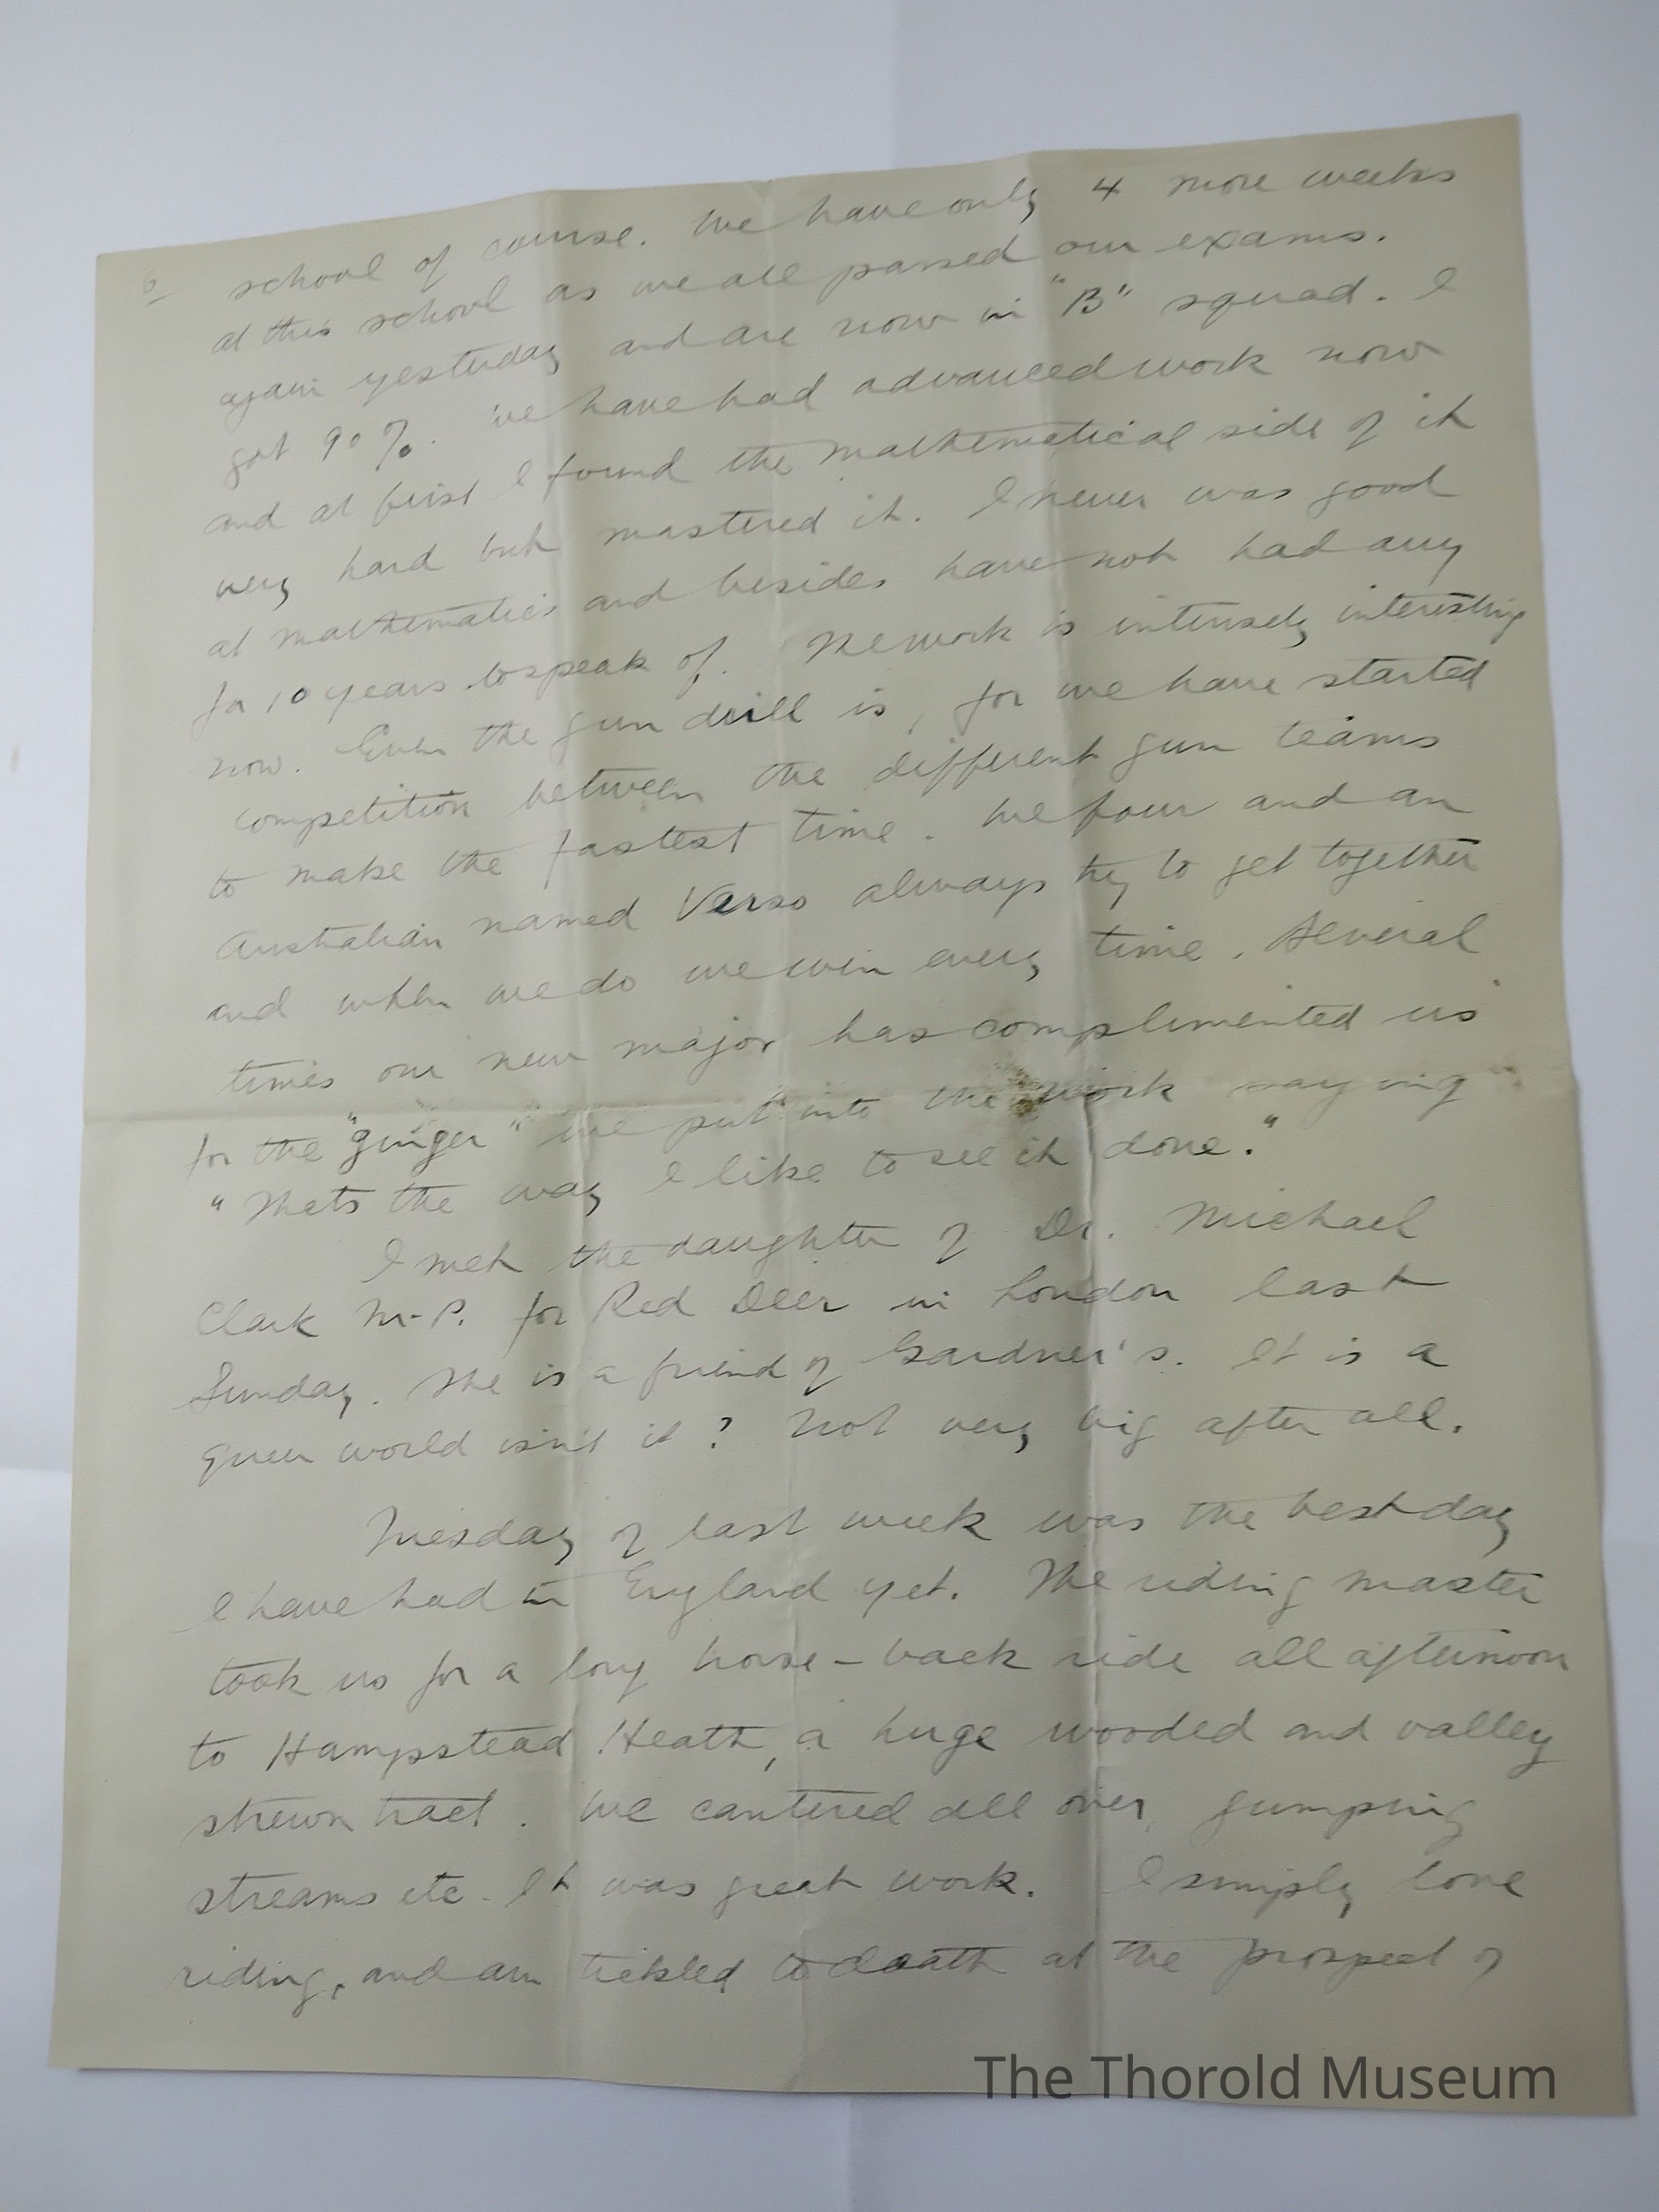 6 school of course. We have only 4 more weeks
at this school as we all passed our exams.
again yesterday and are now in "B" squad. I
got 90%. We have had advanced work now
and at first I found the mathematical side of it
very hard but mastered it. I never was good
at mathematics and besides have not had any
for 10 years to speak of. The work is intensely interesting
now. Even the gun drill is, for we have started
competition between the different gun teams
to make the fastest time. We four and an
Australian named Verso always try to get together
and when we do we win every time. Several
times our new major has complimented us
for the "ginger" we put into the work saying
"Thats the way I like to see it done."
I met the daughter of Dr. Michael
Clark M.P. for Red Deer in London last
Sunday. She is a friend of Gardner's. It is a
queer world isn't it? Not very big after all.
Tuesday of last week was the best day
I have had in England yet. The riding master
took us for a long horse-back ride all afternoon
to Hampstead Heath, a huge wooded and valley
strewn tract. We cantered all over, jumping
streams etc. It was great work. I simply love
riding, and am tickled to death at the prospect of
The Thorold Museum